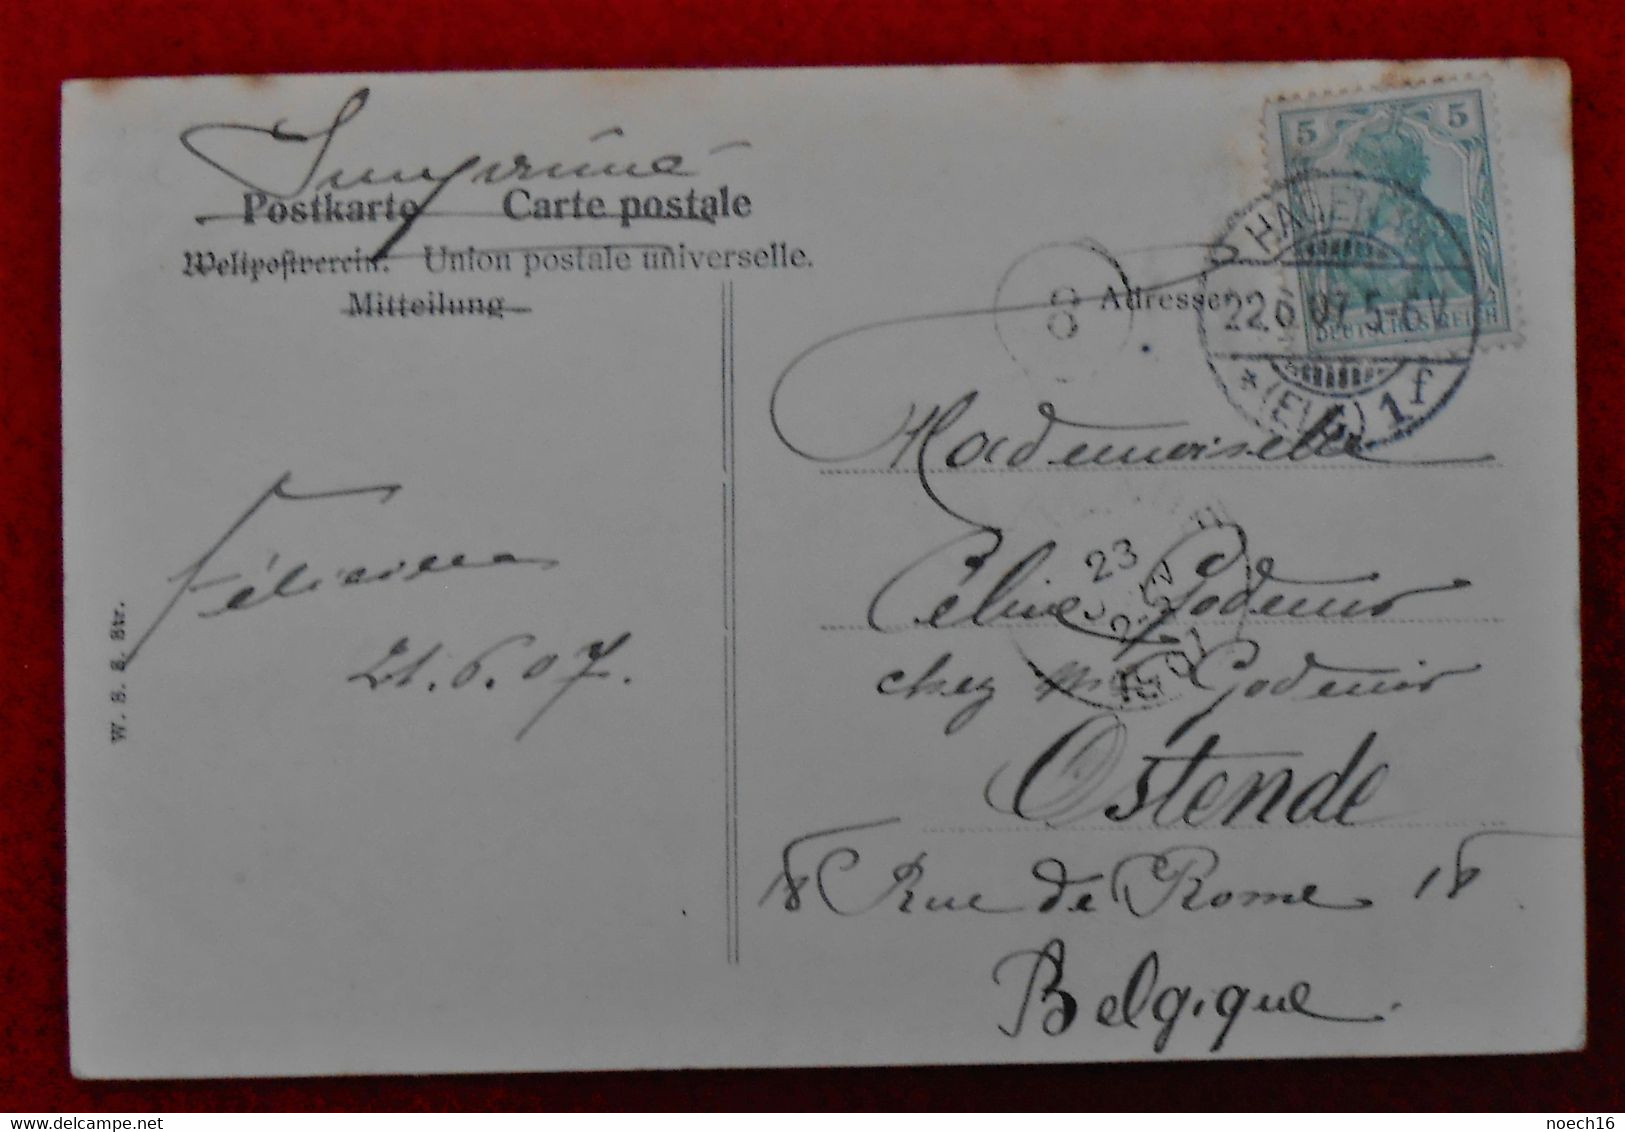 Imprimé
Postkarte Carte postale
Weltpostverein. Union postale universelle.
Mitteilung
Adresse
5 5
DEUTSCHES REICH
HAGEN
22.6.07.5-6V.
*(ELS) 1f
8
Mademoiselle
Céline Godenir
chez Godenir
Ostende
18 Rue de Rome 18
Belgique.
23
21.6.07.
W. S. S. Str.
noech16